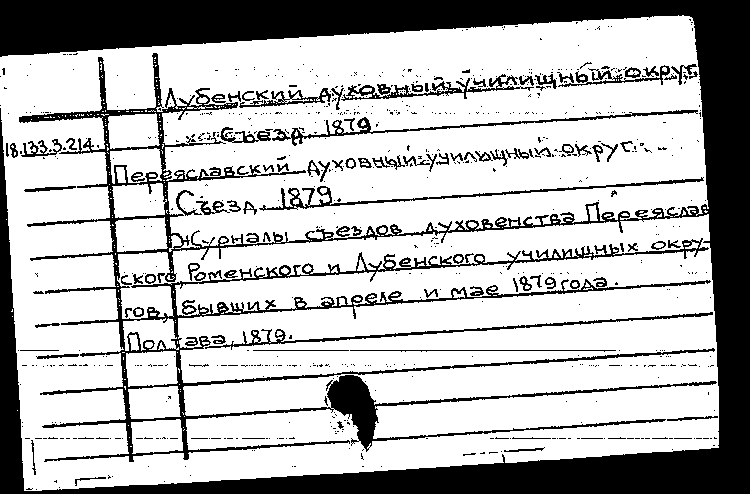 Лубенский духовный училищный округ
Съезд. 1879.
18.133.3.214.
Переяславский духовный училищный округ.
Съезд. 1879.
Журналы съездов духовенства Переяслав
ского, Роменского и Лубенского училищных окру-
гов, бывших в апреле и мае 1879 года.
Полтава, 1879.